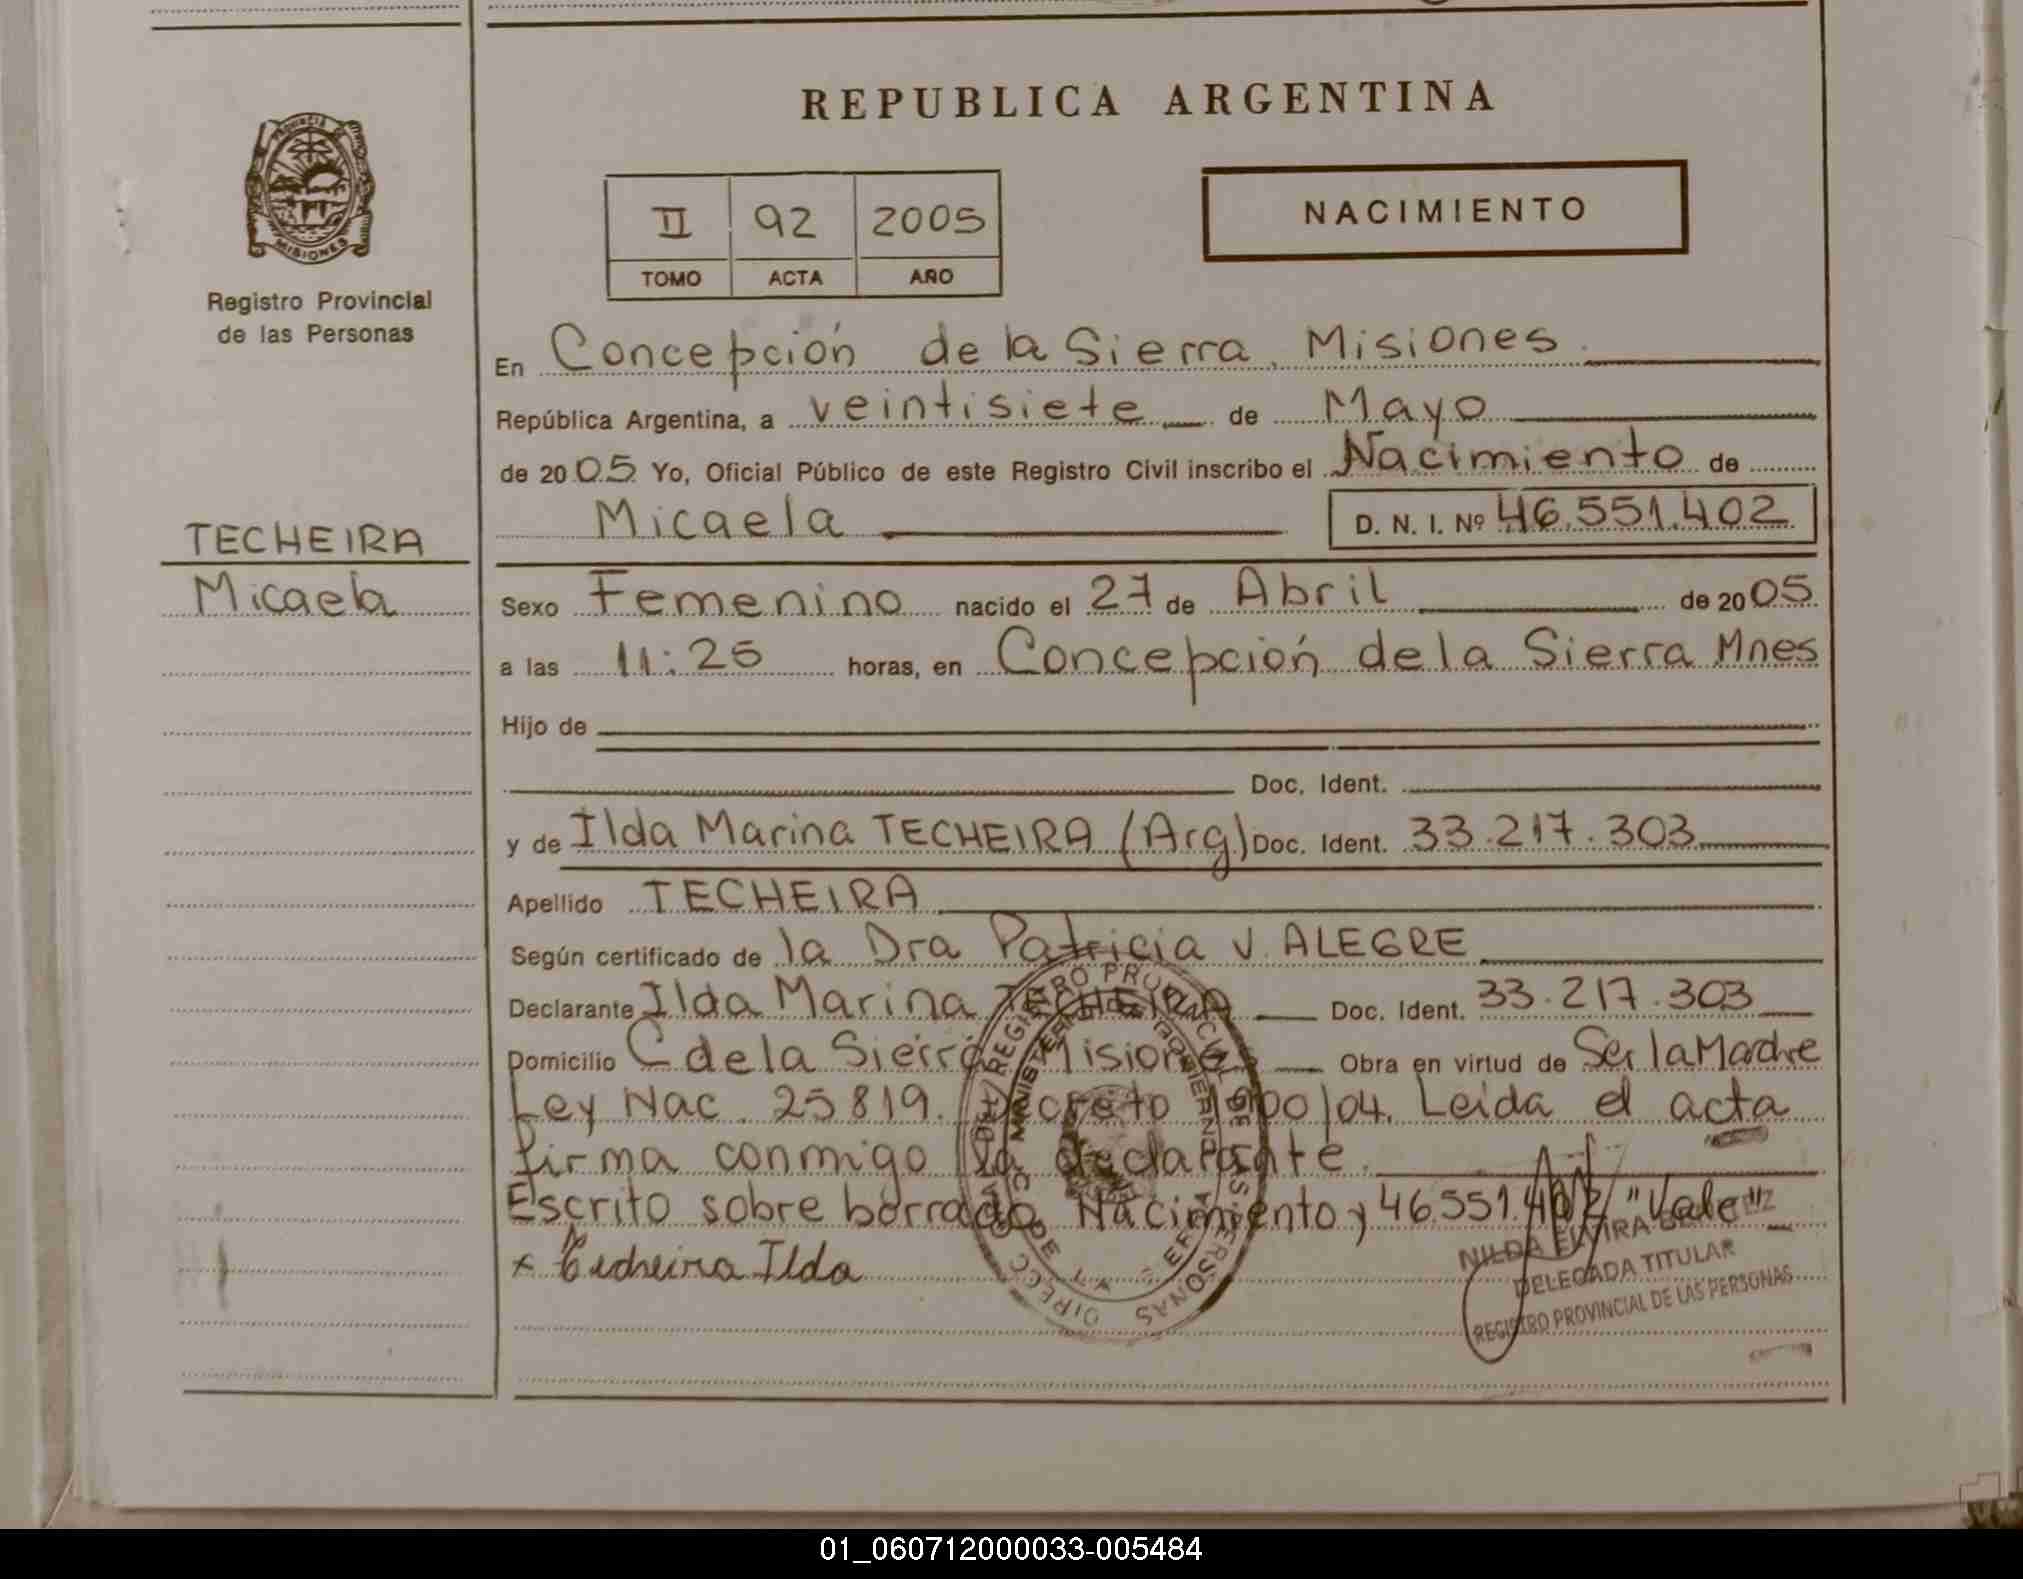 REPUBLICA ARGENTINA
PROVINCIA DE MISIONES
Registro Provincial
de las Personas
II 92 2005
TOMO ACTA AÑO
NACIMIENTO
En Concepción de la Sierra, Misiones.
República Argentina, a veintisiete de Mayo
de 2005 Yo, Oficial Público de este Registro Civil inscribo el Nacimiento de
Micaela D. N. I. Nº 46.551.402
TECHEIRA
Micaela
Sexo Femenino nacido el 27 de Abril de 2005
a las 11:25 horas, en Concepción de la Sierra Mnes
Hijo de
Doc. Ident.
y de Ilda Marina TECHEIRA (Arg) Doc. Ident. 33.217.303
Apellido TECHEIRA
Según certificado de la Dra Patricia V. ALEGRE
Declarante Ilda Marina TECHEIRA Doc. Ident. 33.217.303
Domicilio C de la Sierra Misiones Obra en virtud de Ser la Madre
Ley Nac. 25819. Decreto /04. Leida el acta
firma conmigo la declarante.
Escrito sobre borrado Nacimiento y 46.551.402 "Vale"
x Techeira Ilda
NILDA ELVIRA
DELEGADA TITULAR
REGISTRO PROVINCIAL DE LAS PERSONAS
REGISTRO PROVINCIAL DE LAS PERSONAS
MINISTERIO DE GOBIERNO
01_060712000033-005484